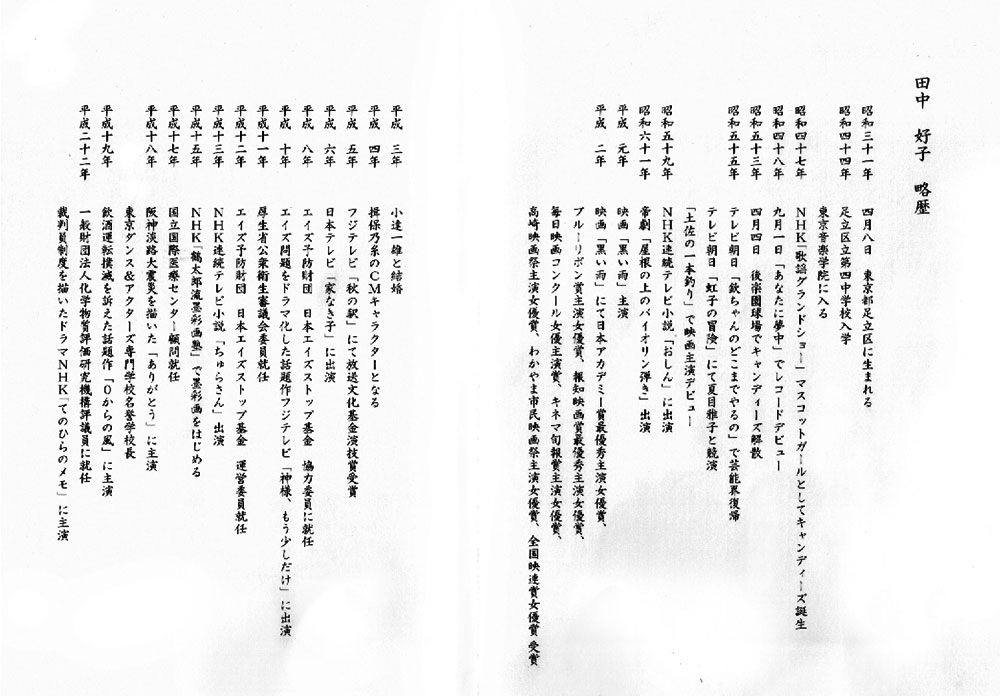 田中 好子 略歴
昭和三十一年 四月八日 東京都足立区に生まれる
昭和四十四年 足立区立第四中学校入学
東京音楽学院に入る
昭和四十七年 NHK「歌謡グランドショー」マスコットガールとしてキャンディーズ誕生
昭和四十八年 九月一日「あなたに夢中」でレコードデビュー
昭和五十三年 四月四日 後楽園球場でキャンディーズ解散
昭和五十五年 テレビ朝日「欽ちゃんのどこまでやるの」で芸能界復帰
テレビ朝日「虹子の冒険」にて夏目雅子と競演
「土佐の一本釣り」で映画主演デビュー
昭和五十九年 NHK連続テレビ小説「おしん」に出演
昭和六十一年 帝劇「屋根の上のバイオリン弾き」出演
平成 元年 映画「黒い雨」主演
平成 二年 映画「黒い雨」にて日本アカデミー賞最優秀主演女優賞、
ブルーリボン賞主演女優賞、報知映画賞最優秀主演女優賞、
毎日映画コンクール女優主演賞、キネマ旬報賞主演女優賞、
高崎映画祭主演女優賞、わかやま市民映画祭主演女優賞、全国映連賞女優賞 受賞
平成 三年 小達一雄と結婚
平成 四年 揖保乃糸のCMキャラクターとなる
平成 五年 フジテレビ「秋の駅」にて放送文化基金演技賞受賞
平成 六年 日本テレビ「家なき子」に出演
平成 八年 エイズ予防財団 日本エイズストップ基金 協力委員に就任
平成 十年 エイズ問題をドラマ化した話題作フジテレビ「神様、もう少しだけ」に出演
平成十一年 厚生省公衆衛生審議会委員就任
平成十二年 エイズ予防財団 日本エイズストップ基金 運営委員就任
平成十三年 NHK連続テレビ小説「ちゅらさん」出演
平成十五年 NHK「鶴太郎流墨彩画塾」で墨彩画をはじめる
平成十七年 国立国際医療センター顧問就任
平成十八年 阪神淡路大震災を描いた「ありがとう」に主演
東京ダンス&アクターズ専門学校名誉学校長
平成十九年 飲酒運転撲滅を訴えた話題作「0からの風」に主演
平成二十二年 一般財団法人化学物質評価研究機構評議員に就任
裁判員制度を描いたドラマNHK「てのひらのメモ」に主演